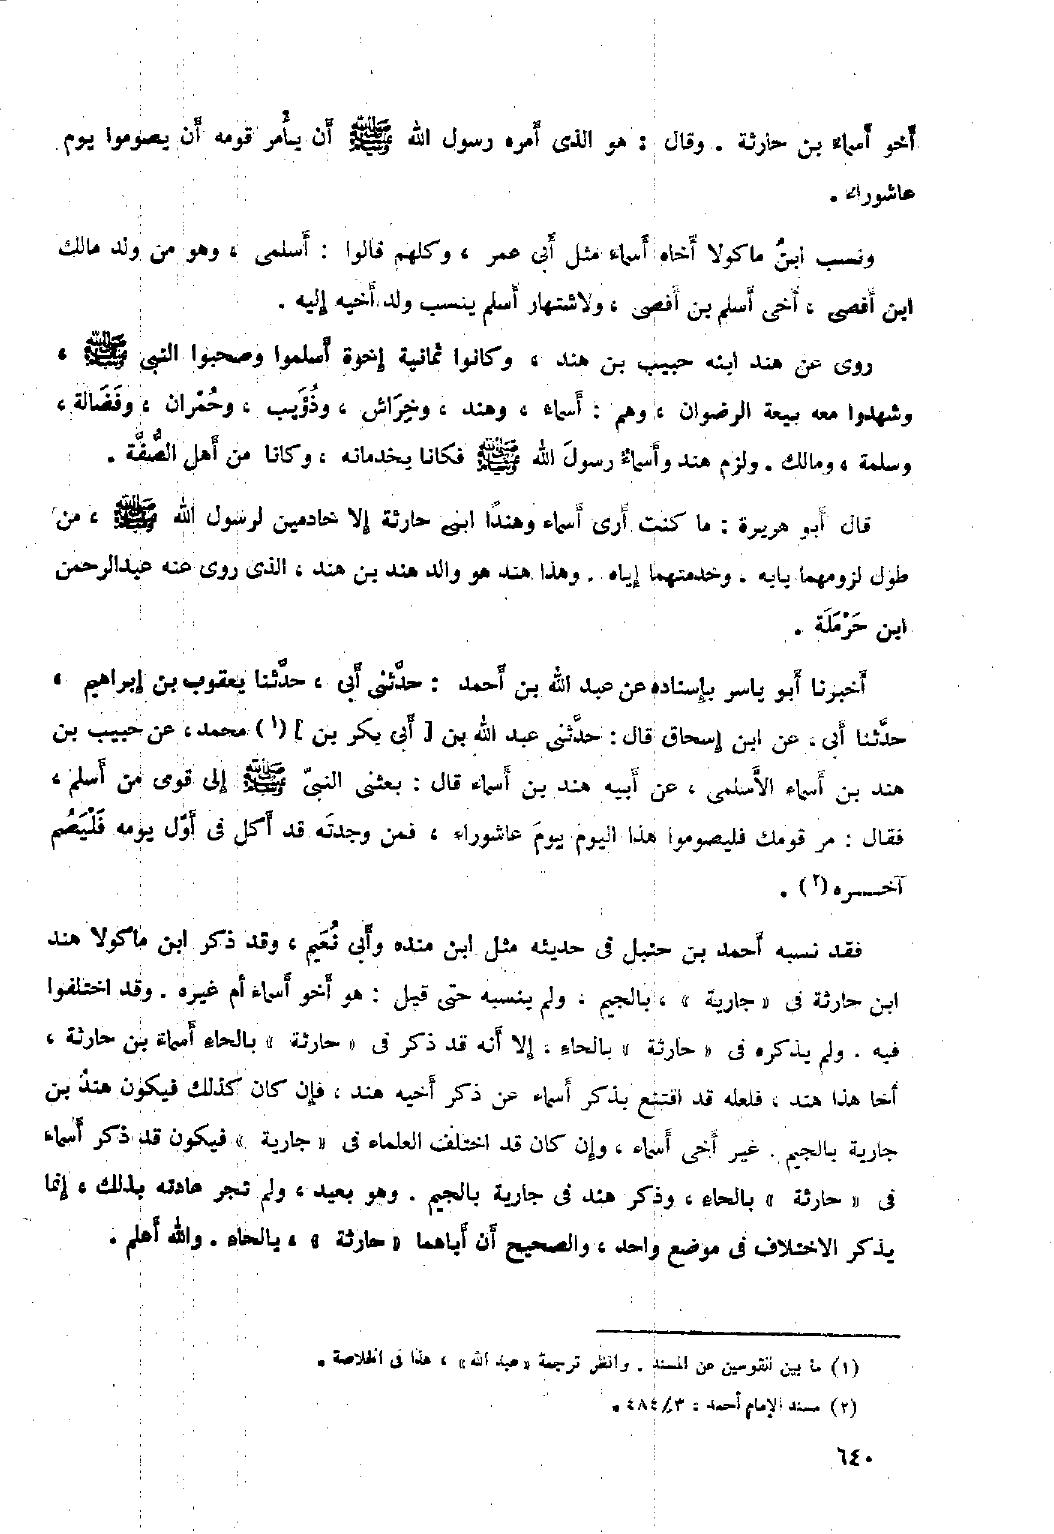 أخو أسماء بن حارثة . وقال : هو الذى أمره رسول الله ﷺ أن يأمر قومه أن يصوموا يوم
عاشوراء .
ونسب ابنُ ماكولا أخاه أسماء مثل أبى عمر ، وكلهم قالوا : أسلمى ، وهو من ولد مالك
ابن أفصى ، أخى أسلم بن أفصى ، ولاشتهار أسلم ينسب ولد أخيه إليه .
روى عن هند ابنه حبيب بن هند ، وكانوا ثمانية إخوة أسلموا وصحبوا النبى ﷺ ،
وشهدوا معه بيعة الرضوان ، وهم : أسماء ، وهند ، وخِرَاش ، وذُؤَيب ، وحُمْران ، وفَضَالة ،
وسلمة ، ومالك . ولزم هند وأسماءُ رسولَ الله ﷺ فكانا يخدمانه ، وكانا من أهل الصُّفَّة .
قال أبو هريرة : ما كنت أرى أسماء وهندًا ابنى حارثة إلا خادمين لرسول الله ﷺ ، من
طول لزومهما بابه . وخدمتهما إياه . وهذا هند هو والد هند بن هند ، الذى روى عنه عبدالرحمن
ابن حَرْمَلَة .
أخبرنا أبو ياسر بإسناده عن عبد الله بن أحمد : حدَّثنى أبى ، حدَّثنا يعقوب بن إبراهيم ،
حدَّثنا أبى ، عن ابن إسحاق قال : حدَّثنى عبد الله بن [ أبى بكر بن ] (١) محمد ، عن حبيب بن
هند بن أسماء الأسلمى ، عن أبيه هند بن أسماء قال : بعثنى النبىّ ﷺ إلى قومى من أسلم ،
فقال : مر قومك فليصوموا هذا اليوم يومَ عاشوراء ، فمن وجدتَه قد أكل فى أوّل يومه فَلْيَصُم
آخـــره (٢) .
فقد نسبه أحمد بن حنبل فى حديثه مثل ابن منده وأبى نُعَيم ، وقد ذكر ابن ماكولا هند
ابن حارثة فى « جارية » ، بالجيم ، ولم ينسبه حتى قيل : هو أخو أسماء أم غيره . وقد اختلفوا
فيه . ولم يذكره فى « حارثة » بالحاء ، إلا أنه قد ذكر فى « حارثة » بالحاء أسماءَ بن حارثة ،
أخا هذا هند ، فلعله قد اقتنع بذكر أسماء عن ذكر أخيه هند ، فإن كان كذلك فيكون هندُ بن
جارية بالجيم . غير أخى أسماء ، وإن كان قد اختلف العلماء فى « جارية » فيكون قد ذكر أسماء
فى « حارثة » بالحاء ، وذكر هند فى جارية بالجيم . وهو بعيد ، ولم تجر عادته بذلك ، إنما
يذكر الاختلاف فى موضع واحد ، والصحيح أن أباهما « حارثة » ، بالحاء . والله أعلم .
(١) ما بين القوسين عن المسند . وانظر ترجمة «عبد الله» ، هذا فى الخلاصة .
(٢) مسند الإمام أحمد : ٤٨٤/٣ .
٦٤٠